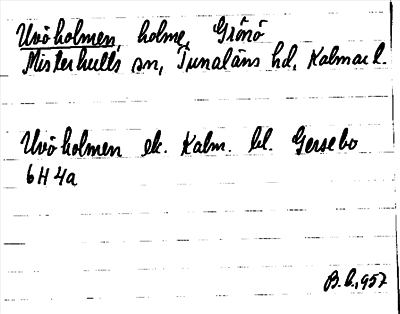 Uvö holmen, holme, Grönö
Misterhults sn, Tunaläns hd, Kalmar l.
Uvö holmen ek. Kalm. bl. Gersebo
6H4a
B.B., 957